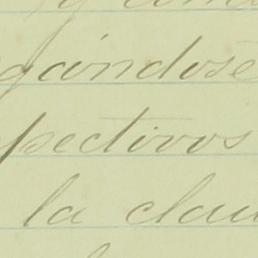 gándose
pectivos
la clau